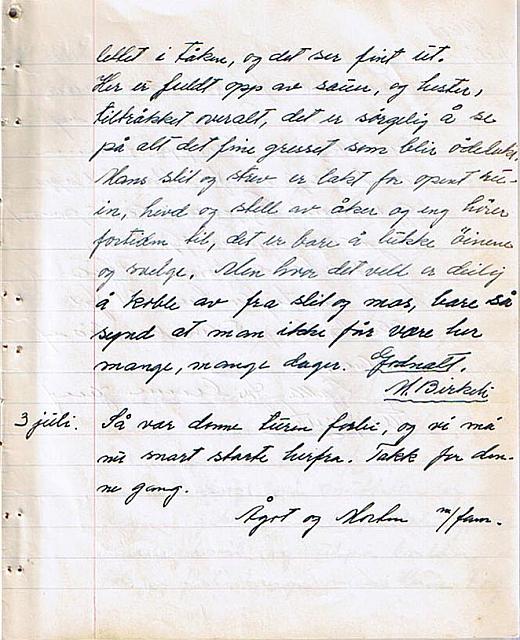 lettet i tåken, og det ser fint ut.
Her er fuldt opp av sauer, og hester,
tiltråkket overalt, det er sørgelig å se
på alt det fine gresset som blir ødelukt.
Mans slit og strev er lakt for åpent ru-
in, hevd og stell av åker og eng hører
fortiden til, det er bare å lukke öinene
og svelge. Men hvor det veld er deilig
å koble av fra slit og mas, bare så
synd at man ikke får være her
mange, mange dager. Godnatt.
M. Birkeli
3 juli. Så var denne turen forbi, og vi må
nu snart starte herfra. Takk for den-
ne gang.
Ågot og Morten m/fam.